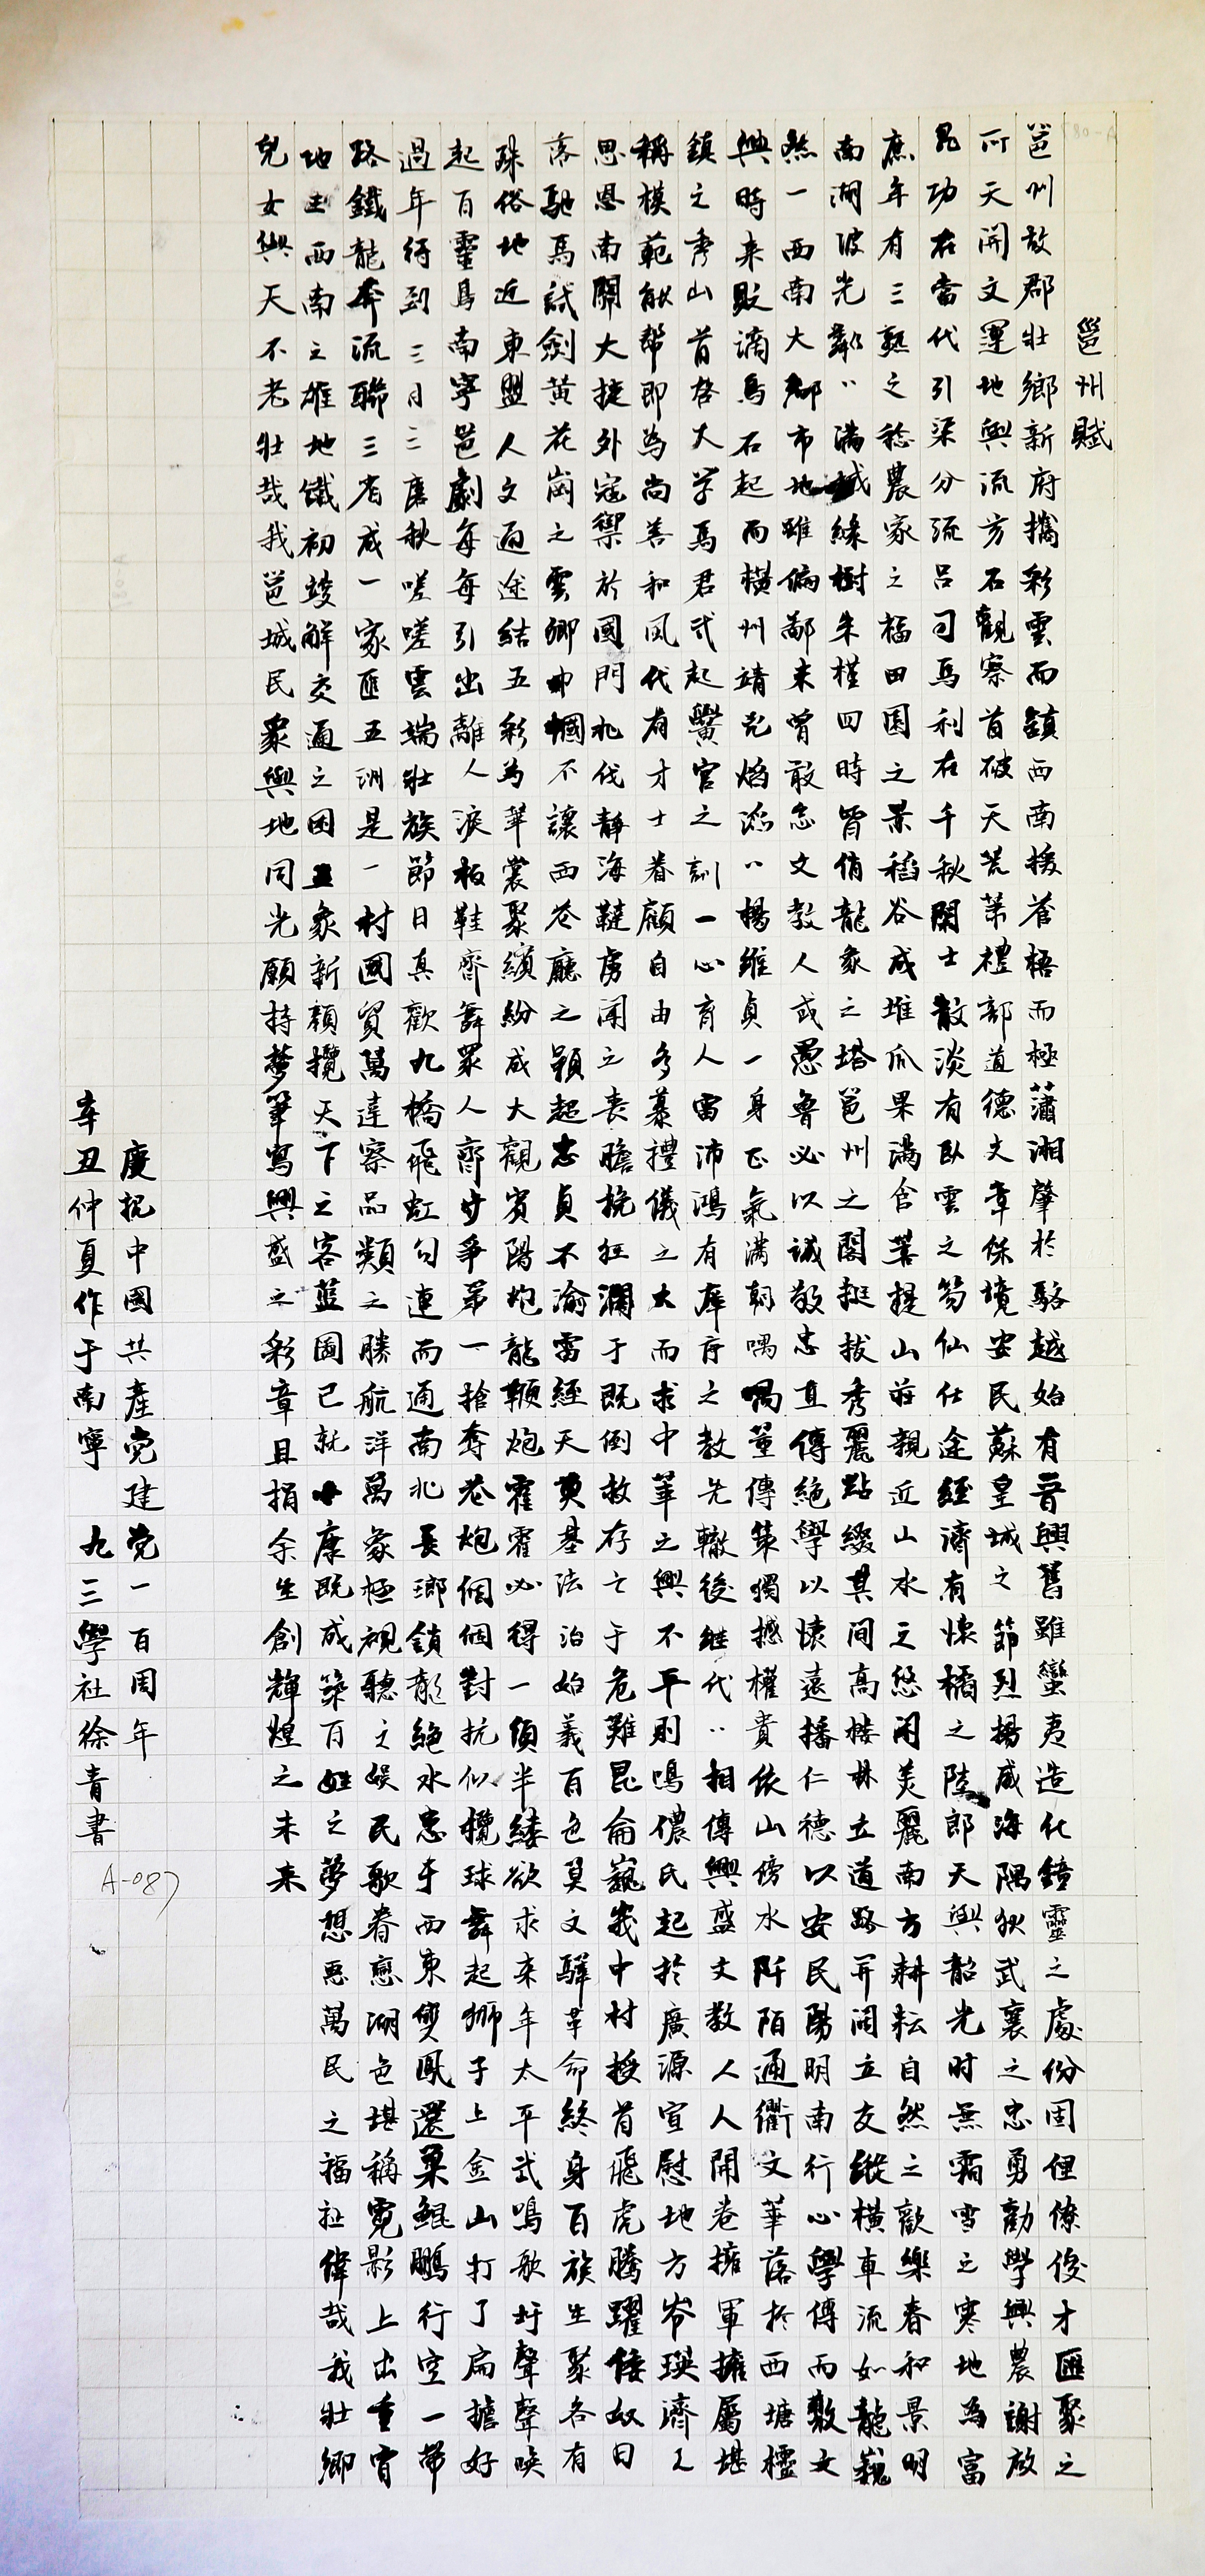 邕州賦
邕州故郡壯鄉新府攜彩雲而鎮西南接蒼梧而極瀟湘肇於駱越始有晉興舊雖蠻夷造化鐘靈之處份固俚僚俊才匯聚之
所天開文運地興流芳石觀察首破天荒第禮部道德文章保境安民蘇皇城之節烈揚威海隅狄武襄之忠勇勸學興農謝放
昆功在當代引渠分流呂司馬利在千秋閑士散淡有臥雲之笏仙仕途經濟有懷橘之陸郎天與韶光时無霜雪之寒地為富
庶年有三熟之稔農家之福田園之景稻谷成堆瓜果滿倉菩提山莊親近山水之悠閑美麗南方耕耘自然之歡樂春和景明
南湖波光粼〃滿城綠樹朱槿四時冒俏龍象之塔邕州之閣挺拔秀麗點綴其間高楼林立道路开阔立交縱橫車流如龍巍
然一西南大都市地雖偏鄙未曾敢忘文教人或愚魯必以誠敬忠直傳絕學以懷遠播仁德以安民陽明南行心學傳而敷文
興時来貶謫烏石起而橫州靖光焰滔〃楊維貞一身正氣滿朝喁喁董傳策獨撼權貴依山傍水阡陌通衢文華落於西塘櫺
鎮之秀山首啓大学馬君武起黌宫之訓一心育人雷沛鴻有庠序之教先轍後继代〃相傳興盛文教人人開卷擁軍擁屬堪
稱模範能幫即為尚善和风代有才士眷顧自由多慕禮儀之大而求中華之興不平則鳴儂氏起於廣源宣慰地方岑瑛濟人
思恩南關大捷外寇禦於國門北伐靜海韃虏闻之丧膽挽狂瀾于既倒救存亡于危難昆侖巍峩中村授首飛虎騰躍倭奴日
落馳馬試劍黃花崗之雲卿巾幗不讓西苍廳之穎超忠貞不渝雷經天奠基法治始義百色莫文驊革命終身百族生聚各有
殊俗地近東盟人文通途結五彩為華裳聚繽紛成大觀賓陽炮龍鞭炮霍霍必得一領半縷欲求来年太平武鳴歌圩聲聲唤
起百靈鳥南寧邕劇每每引出離人淚板鞋齊舞眾人齊步爭第一搶奪花炮個個對抗似欖球舞起狮子上金山打了扁擔好
過年待到三月三唐秋嗟嗟雲端壯族節日真歡九橋飛虹勾連而通南北長瑯鎖龍絕水患于西東雙鳳還巢鯤鵬行空一带
路鐵龍奔流聯三省成一家匯五洲是一村國貿萬達察品類之勝航洋萬象極視聽之娱民歌眷戀湖色堪稱霓影上出重霄
地王西南之雄地鐵初竣解交通之困五象新顏攬天下之客藍圖已就小康既成築百姓之夢想惠萬民之福祉偉哉我壯鄉
兒女與天不老壯哉我邕城民衆與地同光願持夢筆寫興盛之彩章且捐余生創輝煌之未来
慶祝中國共產党建党一百周年
辛丑仲夏作于南寧 九三學社徐青書
A-087